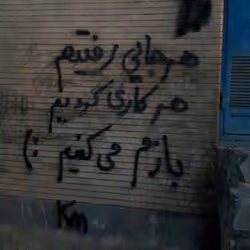 هرجایی رفتیم
هر کاری کردیم
بازم می کنیم :)
Km